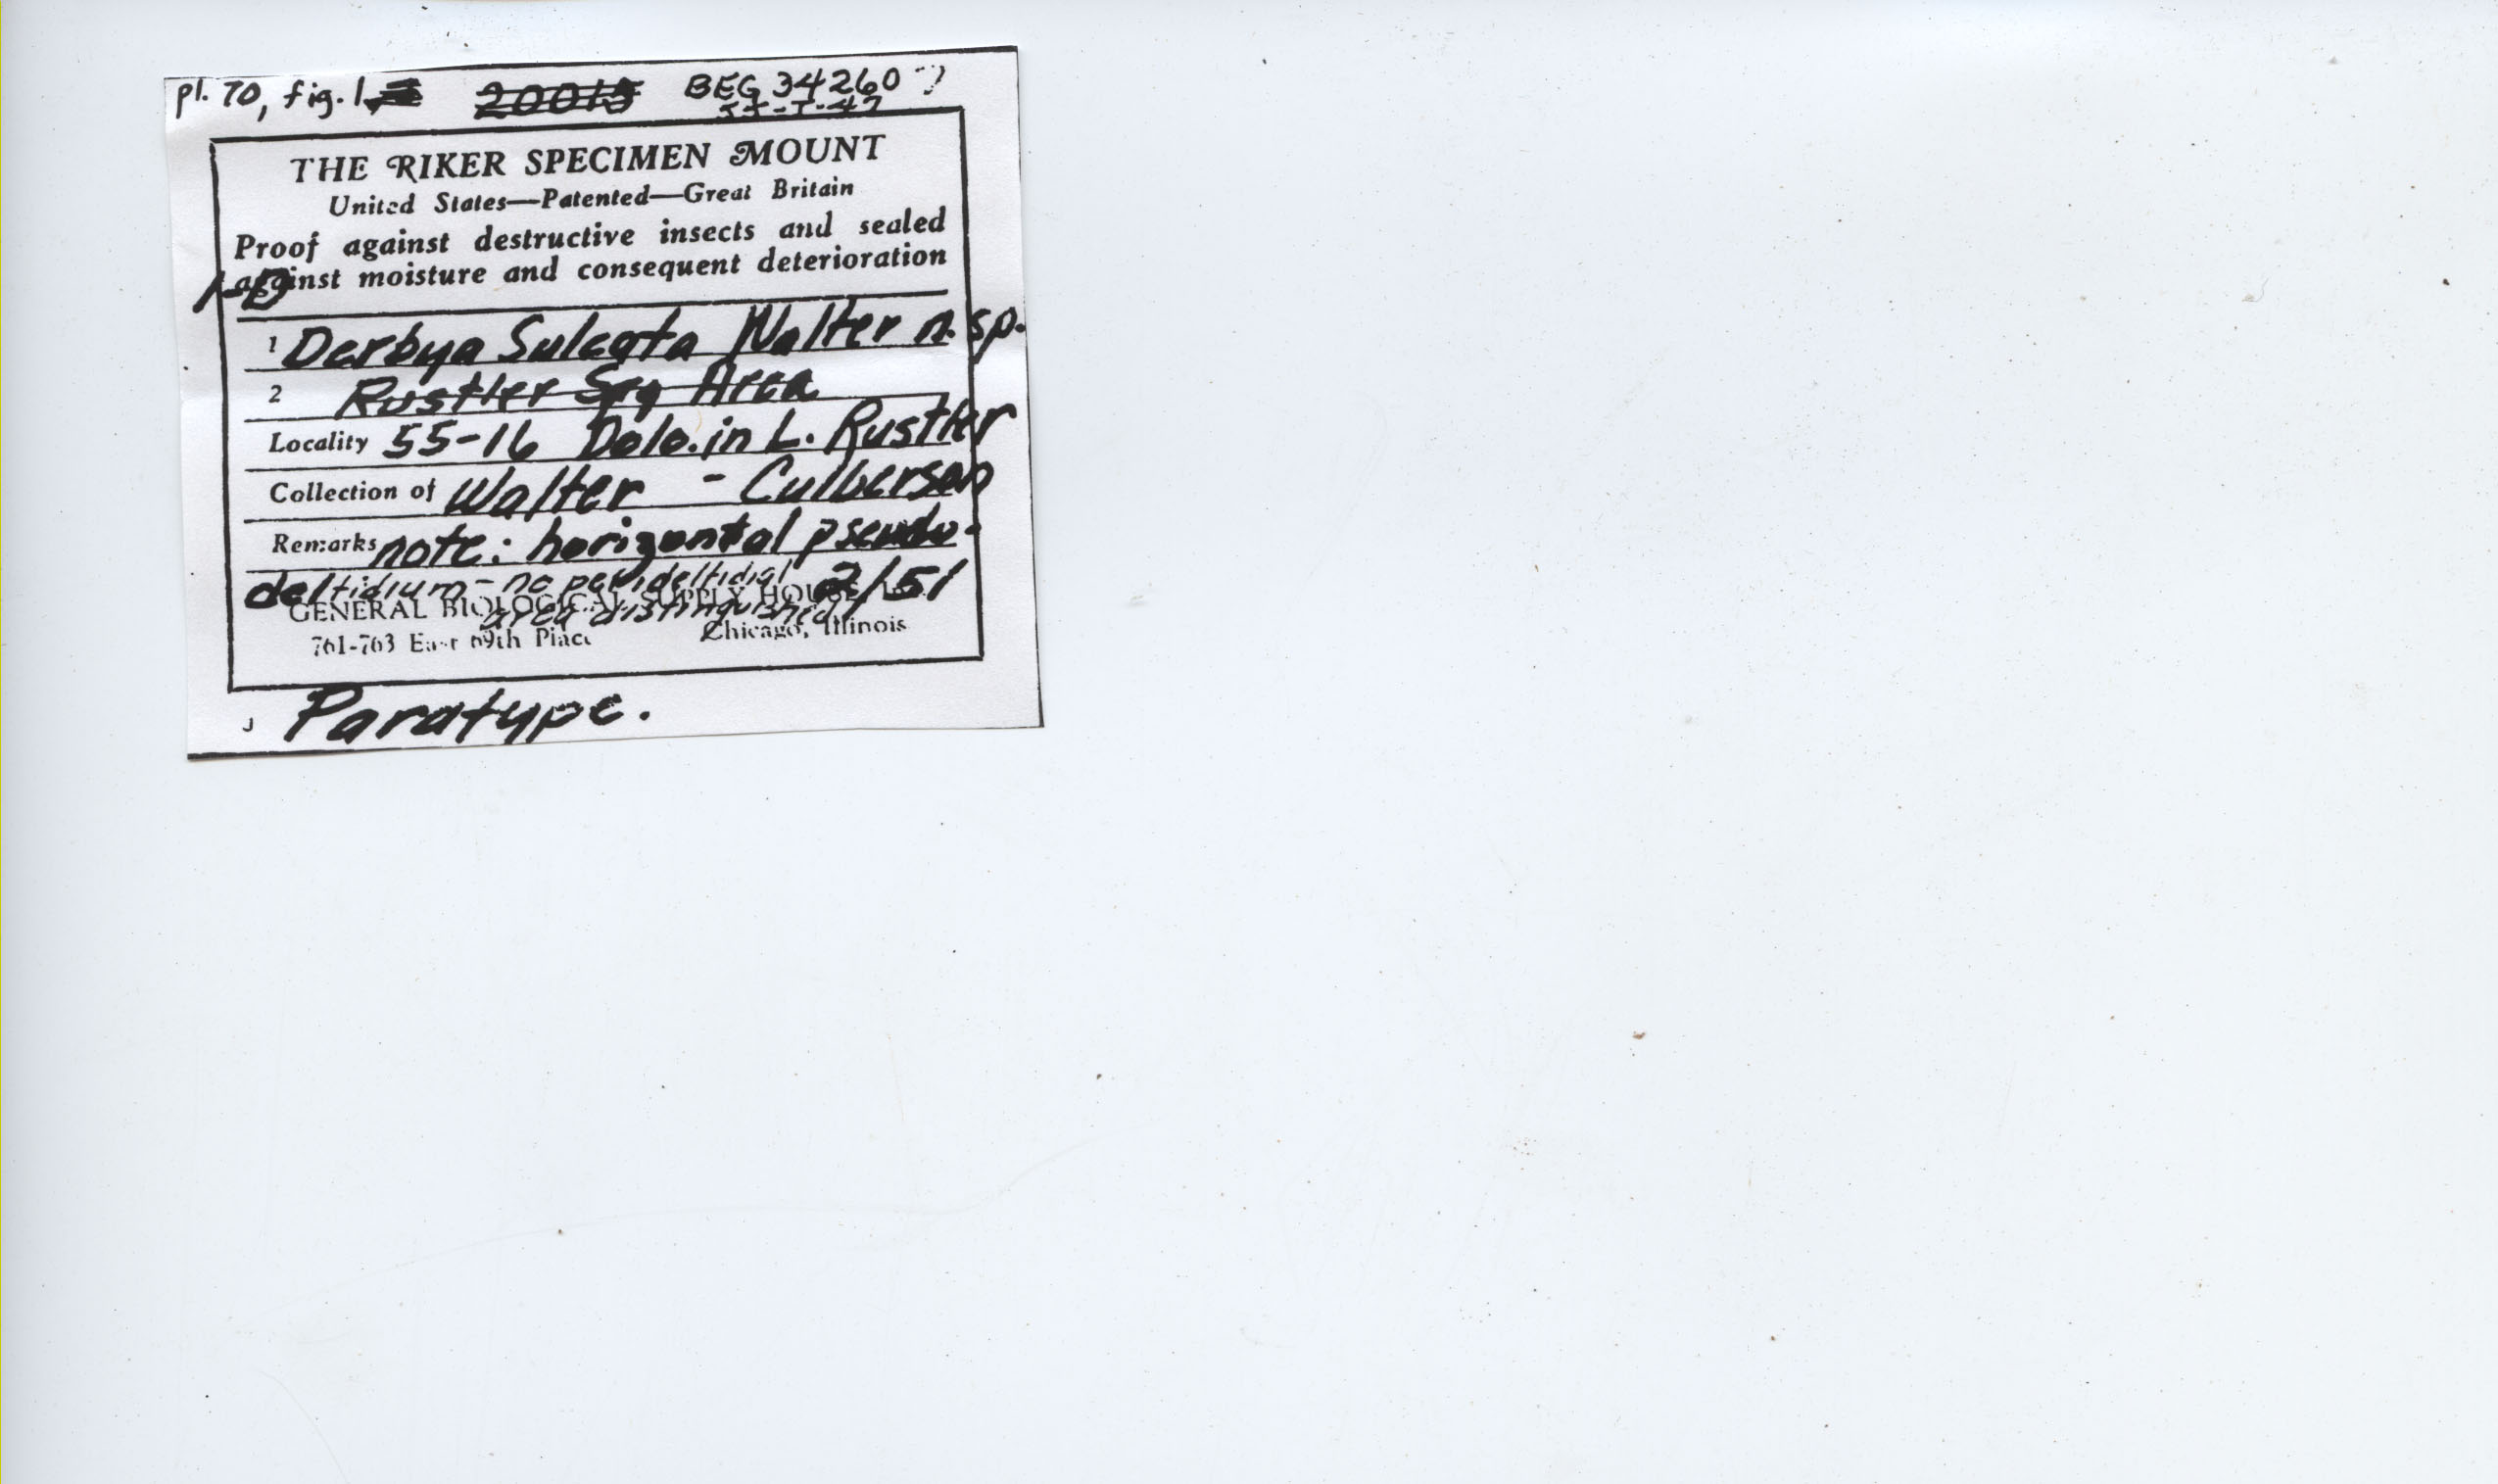 pl. 70, fig. 1
BEG 34260
THE RIKER SPECIMEN MOUNT
United States—Patented—Great Britain
Proof against destructive insects and sealed
against moisture and consequent deterioration
1 Derbya Sulcata Walter n. sp.
2 Rustler Spg Area
Locality 55-16 Dolo. in L. Rustler
Collection of Walter - Culberson
Remarks note: horizontal pseudo-
deltidium - no perideltidial 2/51
GENERAL BIOLOGICAL SUPPLY HOUSE
area distinguished
761-763 East 69th Place Chicago, Illinois
Paratype.